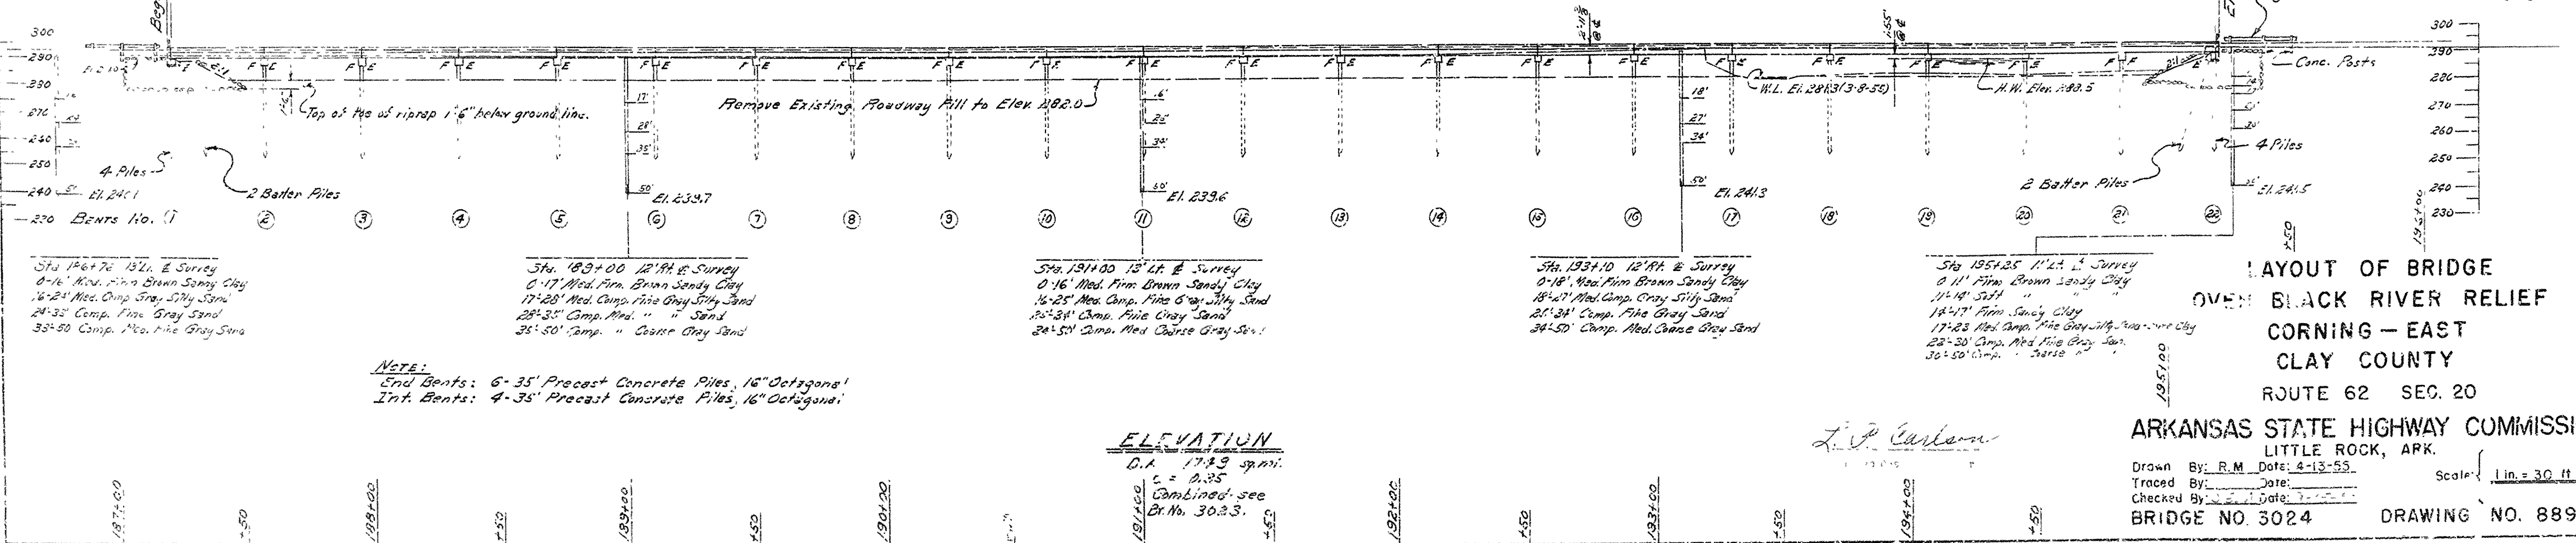 Beg
300
290
280
270
260
250
240
230
300
290
280
270
260
250
240
230
F E
Top of toe of riprap 1'-6" below ground line.
Remove Existing Roadway Fill to Elev. 282.0
W.L. El. 281.3 (3-8-55)
H.W. Elev. 288.5
Conc. Posts
4 Piles
2 Batter Piles
17'
28'
35'
50'
El. 239.7
16'
25'
34'
50'
El. 239.6
18'
27'
34'
50'
El. 241.3
2 Batter Piles
4 Piles
El. 241.5
BENTS NO. 1 2 3 4 5 6 7 8 9 10 11 12 13 14 15 16 17 18 19 20 21 22
13' Lt. ℄ Survey
0-16' Med. Firm Brown Sandy Clay
16-24' Med. Comp. Gray Silty Sand
24-33' Comp. Fine Gray Sand
33-50' Comp. Med. Fine Gray Sand
Sta. 189+00 12' Rt. ℄ Survey
0-17' Med. Firm Brown Sandy Clay
17-28' Med. Comp. Fine Gray Silty Sand
28-35' Comp. Med. " " Sand
35-50' Comp. " Coarse Gray Sand
Sta. 191+00 13' Lt. ℄ Survey
0-16' Med. Firm Brown Sandy Clay
16-25' Med. Comp. Fine Gray Silty Sand
25-34' Comp. Fine Gray Sand
34-50' Comp. Med Coarse Gray Sand
Sta. 193+10 12' Rt. ℄ Survey
0-18' Med. Firm Brown Sandy Clay
18-27' Med. Comp. Gray Silty Sand
Comp. Fine Gray Sand
34-50' Comp. Med. Coarse Gray Sand
Sta 195+25 11' Lt. ℄ Survey
0-11' Firm Brown Sandy Clay
11-14' Soft " " "
14-17' Firm Sandy Clay
17-23 Med. Comp. Fine Gray Silty Sand Clay
23-30' Comp. Med Fine Gray San.
30-50' Comp. " Coarse " "
NOTE:
End Bents: 6-35' Precast Concrete Piles, 16" Octagonal
Int. Bents: 4-35' Precast Concrete Piles, 16" Octagonal
ELEVATION
D.A. 1749 sq.mi.
c = 0.35
Combined-see
Br. No. 3023.
L. P. Carlson
187+00
+50
188+00
+50
189+00
+50
190+00
191+00
+50
192+00
+50
193+00
+50
194+00
+50
195+00
+50
196+00
LAYOUT OF BRIDGE
OVER BLACK RIVER RELIEF
CORNING - EAST
CLAY COUNTY
ROUTE 62 SEC. 20
ARKANSAS STATE HIGHWAY COMMISSI
LITTLE ROCK, ARK.
Drawn By: R.M Date: 4-13-55
Traced By: Date:
Checked By: Date:
Scale: 1 in. = 30 ft
BRIDGE NO. 3024 DRAWING NO. 889